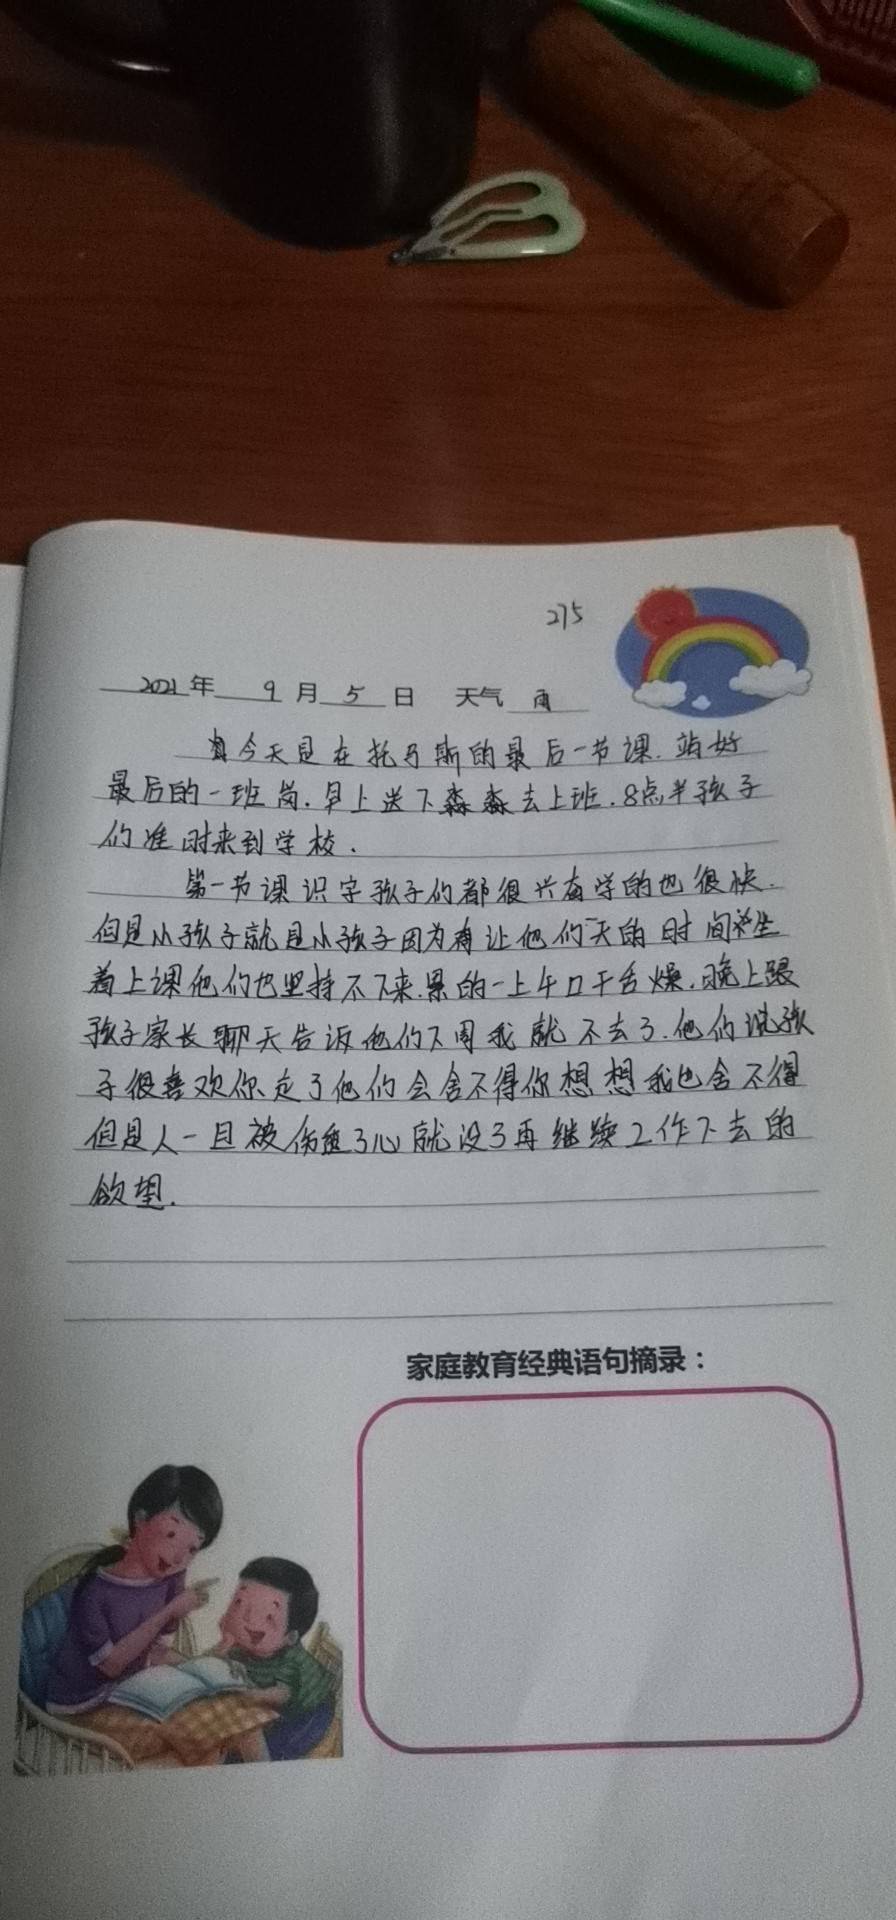 275
2021年 9月5日 天气 雨
今天是在托马斯的最后一节课.站好
最后的一班岗.早上送下淼淼去上班.8点半孩子
们准时来到学校.
第一节课识字孩子们都很兴奋学的也很快.
但是小孩子就是小孩子因为让他们一天的时间坐
着上课他们也坚持不下来.累的一上午口干舌燥.晚上跟
孩子家长聊天告诉他们下周我就不去了.他们说孩
子很喜欢你走了他们会舍不得你想想我也舍不得
但是人一旦被伤透了心就没了再继续工作下去的
欲望.
家庭教育经典语句摘录：